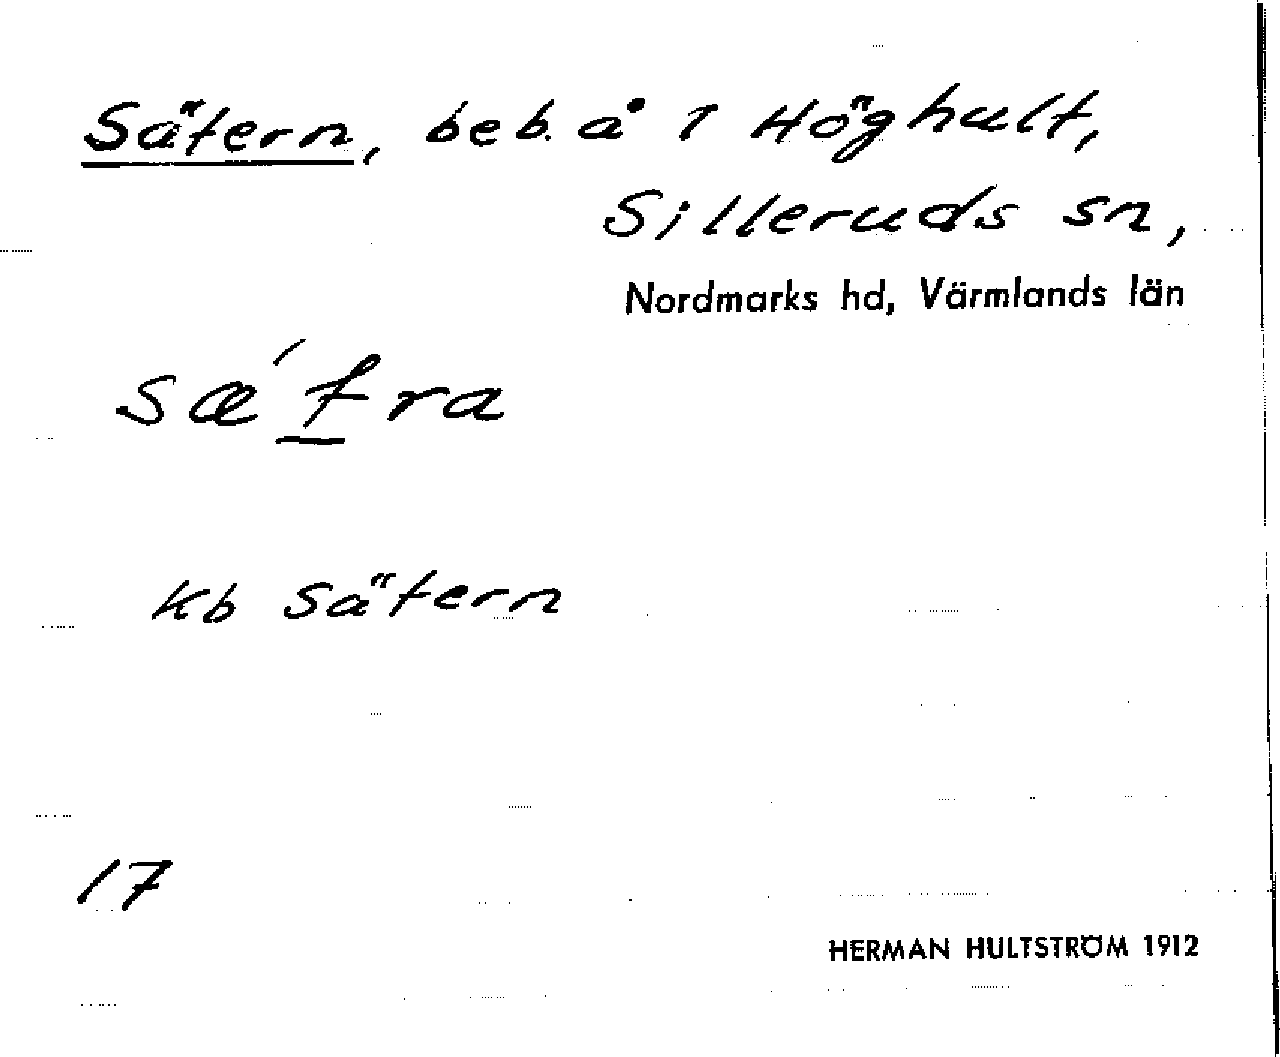 Sätern, beb. å 1 Höghult,
Silleruds sn,
Nordmarks hd, Värmlands län
sæ´tra
kb Sätern
17
HERMAN HULTSTRÖM 1912